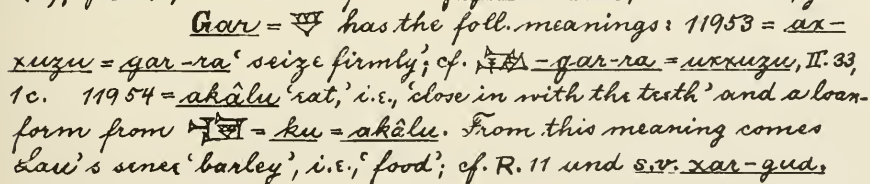 Gar = 𒃻 has the foll. meanings: 11953 = ax-
xuzu = gar-ra ‘seize firmly’; cf. -gar-ra = uxxuzu, II. 33,
1c. 11954 = akâlu ‘eat,’ i.e., ‘close in with the teeth’ and a loan-
form from 𒅥 = ku = akâlu. From this meaning comes
Lau's sense ‘barley’, i.e., ‘food’; cf. R. 11 und s.v. xar-gud.